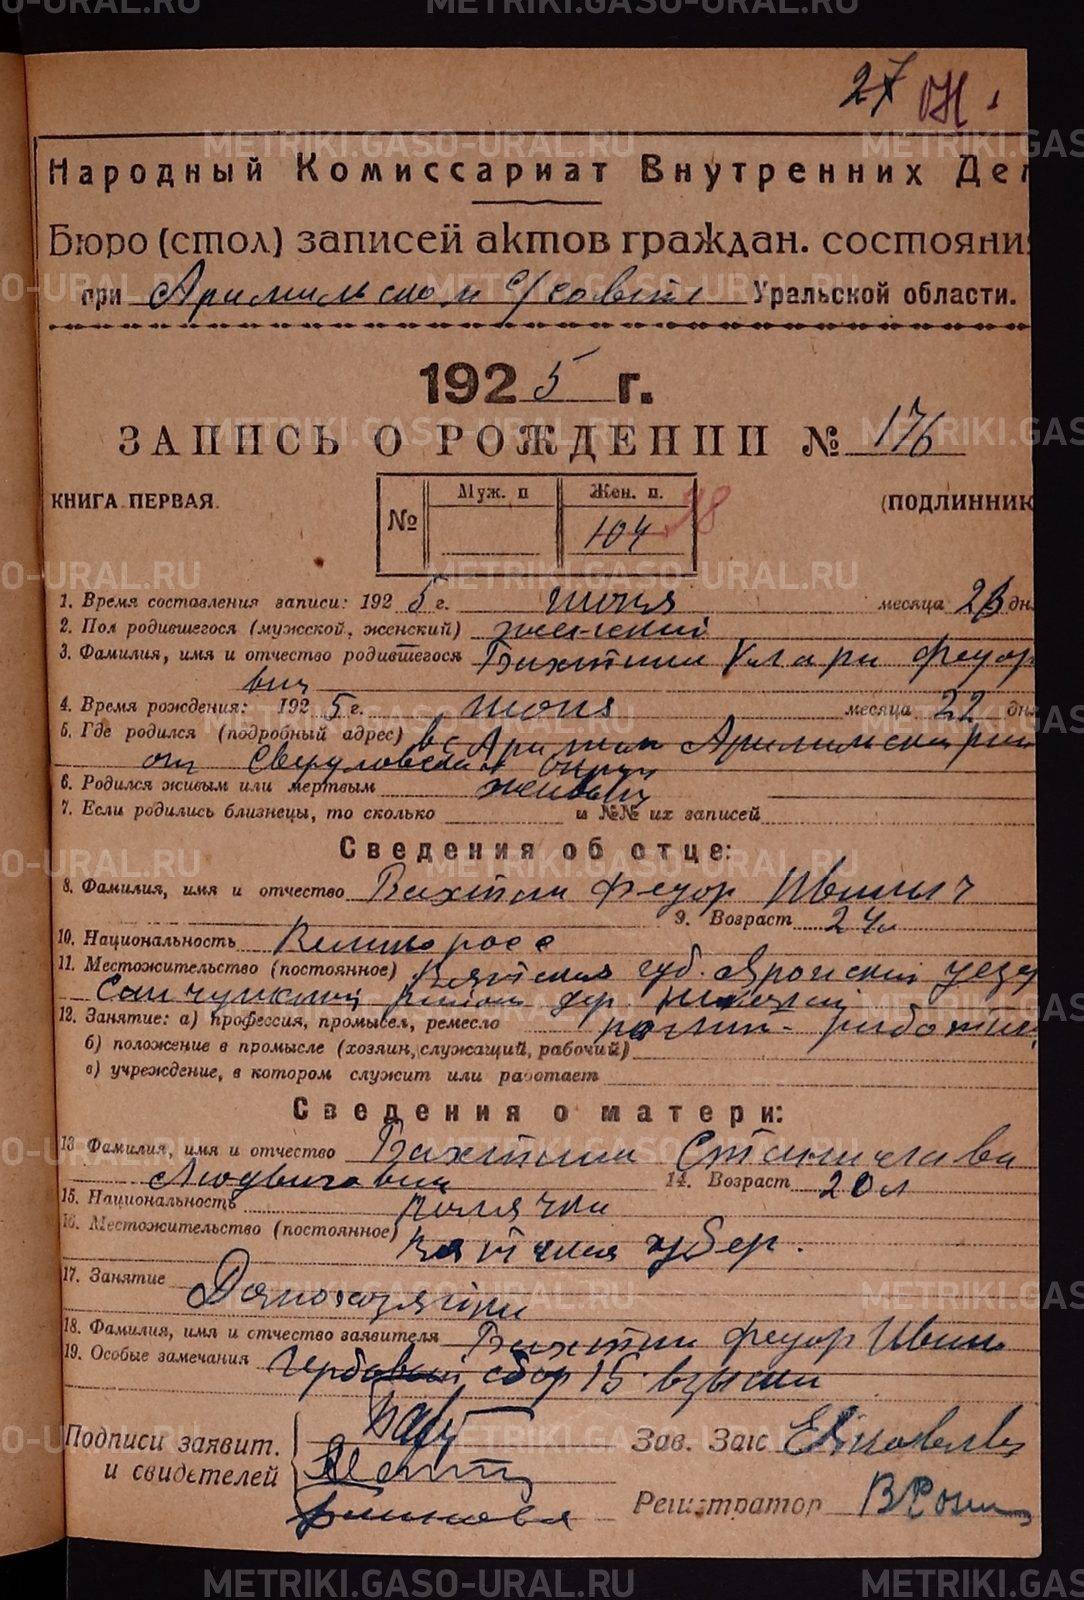 METRIKI.GASO-URAL.RU
27
Народный Комиссариат Внутренних Дел
Бюро (стол) записей актов граждан. состояния
при Арамильском с/совете Уральской области.
1925 г.
ЗАПИСЬ О РОЖДЕНИИ № 176
КНИГА ПЕРВАЯ. (ПОДЛИННИК
№ Муж. п Жен. п. 98
104
1. Время составления записи: 1925 г. июня месяца 23 дня
2. Пол родившегося (мужской, женский) женский
3. Фамилия, имя и отчество родившегося Бахтина Федор
вна
4. Время рождения: 1925 г. июня месяца 22 дня
5. Где родился (подробный адрес) в с Арамил Арамильский рай
он Свердловский округ
6. Родился живым или мертвым живым
7. Если родились близнецы, то сколько и №№ их записей
Сведения об отце:
8. Фамилия, имя и отчество Бахтин Федор Иваныч
9. Возраст 24 л
10. Национальность Великоросс
11. Местожительство (постоянное) Вятская губ. Яранский уезд
Санчурский район дер.
12. Занятие: а) профессия, промысел, ремесло работник
б) положение в промысле (хозяин, служащий, рабочий)
в) учреждение, в котором служит или работает
Сведения о матери:
13 Фамилия, имя и отчество Бахтина Станислава
Людвиговна 14. Возраст 20 л
15. Национальность полячка
16. Местожительство (постоянное) Вятская губер.
17. Занятие Домохозяйка
18. Фамилия, имя и отчество заявителя Бахтин Федор Иван
19. Особые замечания Гербовый сбор 15 взыскан
Подписи заявит. Зав. Загс
и свидетелей
Регистратор